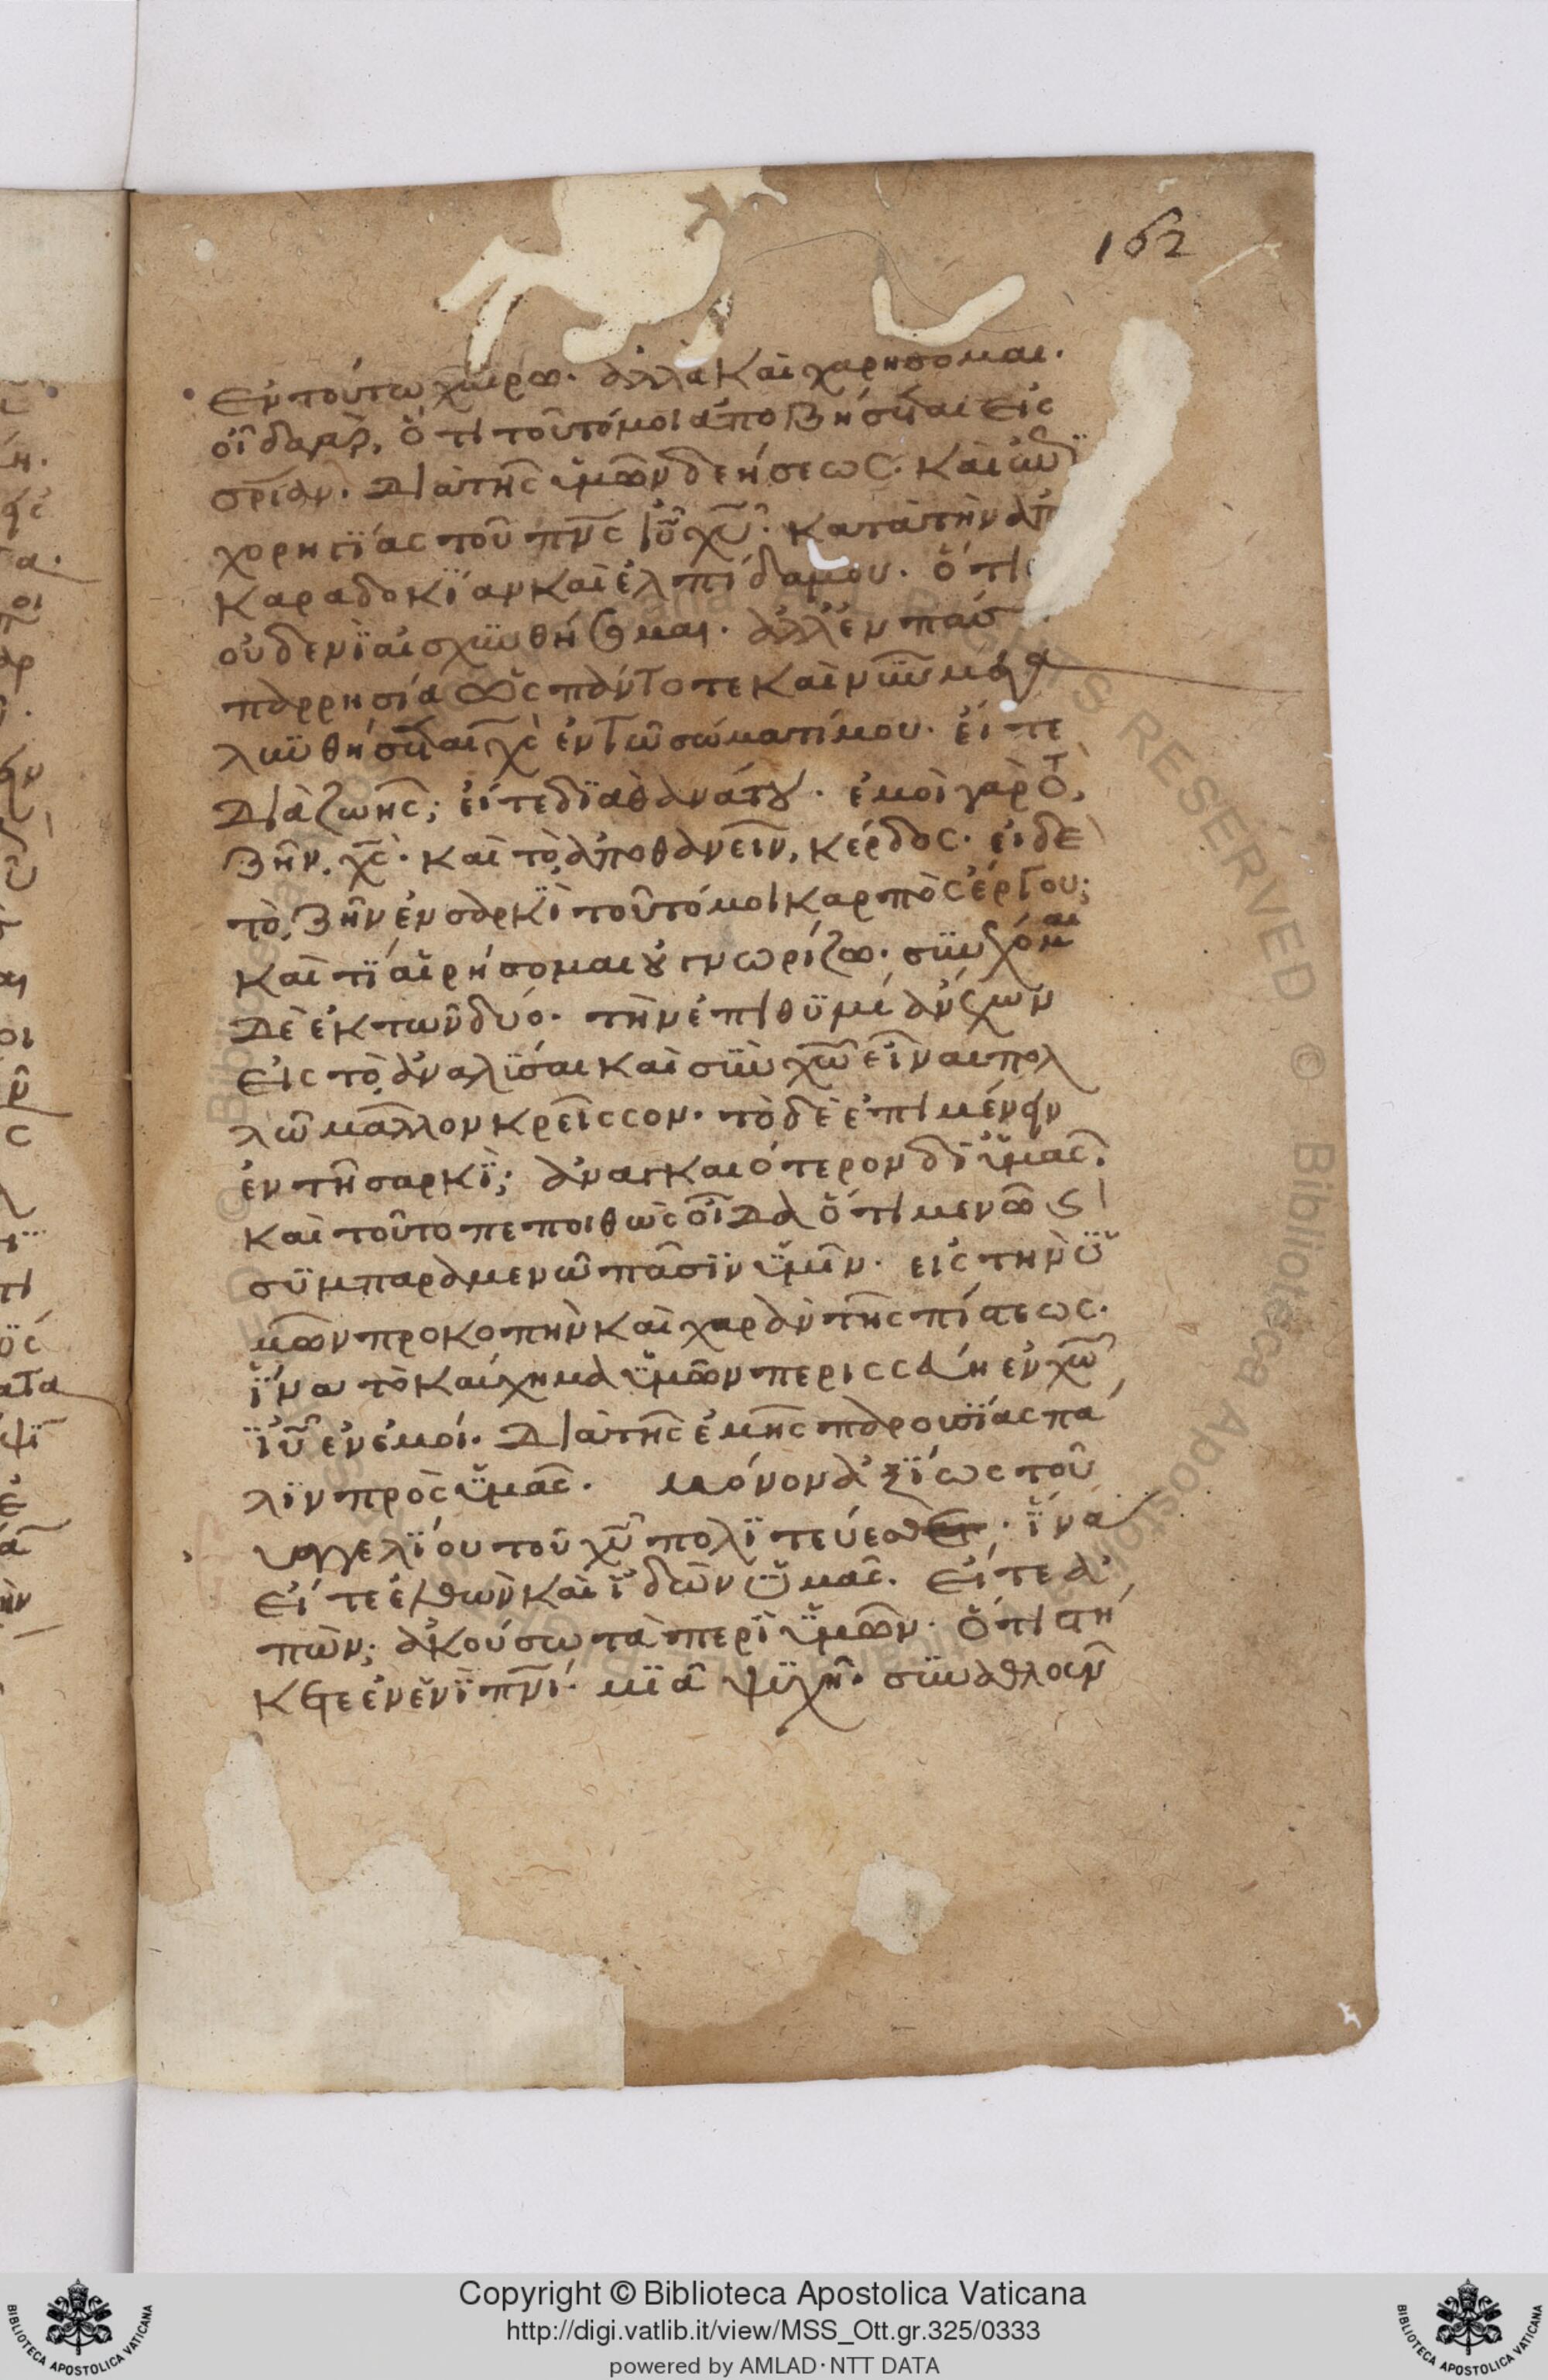 162
ἐν τούτω χαίρω· ἀλλὰ καὶ χαρησομαι·
οἶδα γὰρ, ὅτι τοῦτό μοι ἀποβήσεται εἰς
σ̅ρίαν· διὰ τῆς ὑμῶν δεήσεως· καὶ
χορηγΐας τοῦ π̅ν̅ς ἰ̅υ̅ χ̅υ̅· κατὰ τὴν ἀπ
καραδοκΐαν καὶ ἐλπίδα μου· ὅτι
οὐδενῒ αἰσχϋνθήσομαι· ἀλλ' ἐν πάσ
παρρησία ὡς πάντοτε καὶ νῦν μεγα
λυνθήσεται χ̅ς̅ ἐν τῶ σώματί μου· εἴτε
διὰ ζωῆς; εἴτε δϊὰ θανάτου· ἐμοὶ γὰρ τὸ,
ζῆν, χ̅ς̅· καὶ τὸ, ἀποθανεῖν, κέρδος· εἰ δὲ
τὸ, ζῆν ἐν σαρκῒ τοῦτό μοι καρπὸς ἔργου;
καὶ τΐ αἱρήσομαι οὐ γνωρίζω· σϋνέχομαι
δὲ ἐκ τῶν δύο· τὴν ἐπιθϋμίαν ἔχων
εἰς τὸ, ἀναλῦσαι καὶ σὺν χ̅ω̅ εἶναι πολ
λῶ μᾶλλον κρεῖσσον· τὸ δὲ ἐπιμένειν
ἐν τῆ σαρκῒ; ἀναγκαιότερον δι' ὑμᾶς.
καὶ τοῦτο πεποιθὼς οἶδα ὅτι μενῶ καὶ
σϋμπαραμενῶ πᾶσϊν ὑμῖν· εἰς τὴν ὑ
μῶν προκοπὴν καὶ χαρὰν τῆς πίστεως·
ἵνα τὸ καύχημα ὑμῶν περισσεύη ἐν χ̅ω̅
ἰ̅υ̅ ἐν ἐμοί· διὰ τῆς ἐμῆς παρουσίας πά
λϊν πρὸς ὑμᾶς. μόνον ἀξΐως τοῦ
ευαγγελΐου τοῦ χ̅υ̅ πολϊτεύεσθε· ἵνα
εἴτε ἐλθὼν καὶ ἰδὼν ὑμᾶς. εἴτε ἀ
πὼν; ἀκούσω τὰ περῒ ὑμῶν· ὅτι στή
κετε ἐν ἑνῒ π̅ν̅ι̅· μϊᾶ ψϋχῆ· σϋναθλοῦν
Copyright © Biblioteca Apostolica Vaticana
http://digi.vatlib.it/view/MSS_Ott.gr.325/0333
powered by AMLAD·NTT DATA